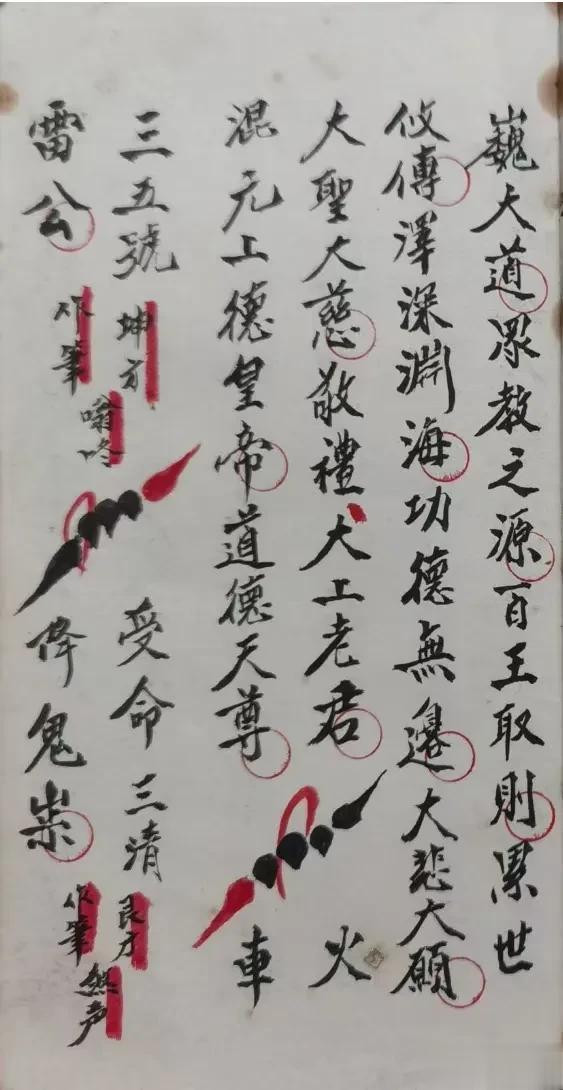 巍大道眾教之源百王取則累世
攸傳澤深淵海功德無邊大悲大願
大聖大慈敬禮大上老君
混元上德皇帝道德天尊
火
車
三五號
坤方
雷公
作筆
嗡咚
受命三清
艮方
降鬼祟
作筆
声